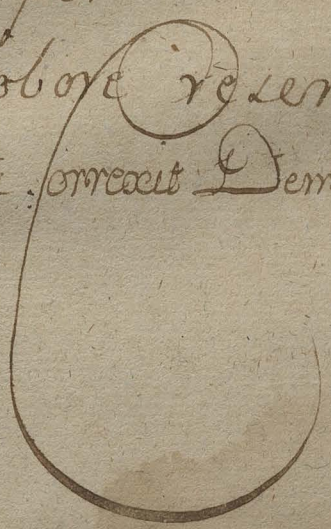 obore recen
correxit Dem